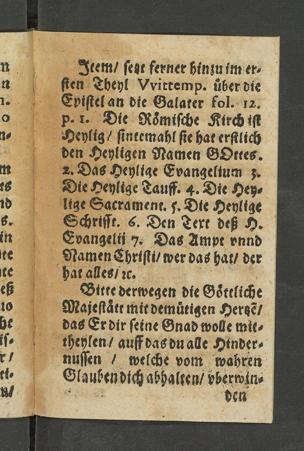 Jtem/ setzt ferner hinzu im er-
sten Theyl Vvittemp. über die
Epistel an die Galater fol. 12.
p. 1. Die Römische Kirch ist
Heylig/ sintemahl sie hat erstlich
den Heyligen Namen GOttes.
2. Das Heylige Evangelium 3.
Die Heylige Tauff. 4. Die Hey-
lige Sacrament. 5. Die Heylige
Schrifft. 6. Den Text deß H.
Evangelii 7. Das Ampt vnnd
Namen Christi/ wer das hat/ der
hat alles/ ꝛc.
Bitte derwegen die Göttliche
Majestätt mit demütigen Hertzẽ/
das Er dir seine Gnad wolle mit-
theylen/ auff das du alle Hinder-
nussen / welche vom wahren
Glauben dich abhalten/ vberwin-
den